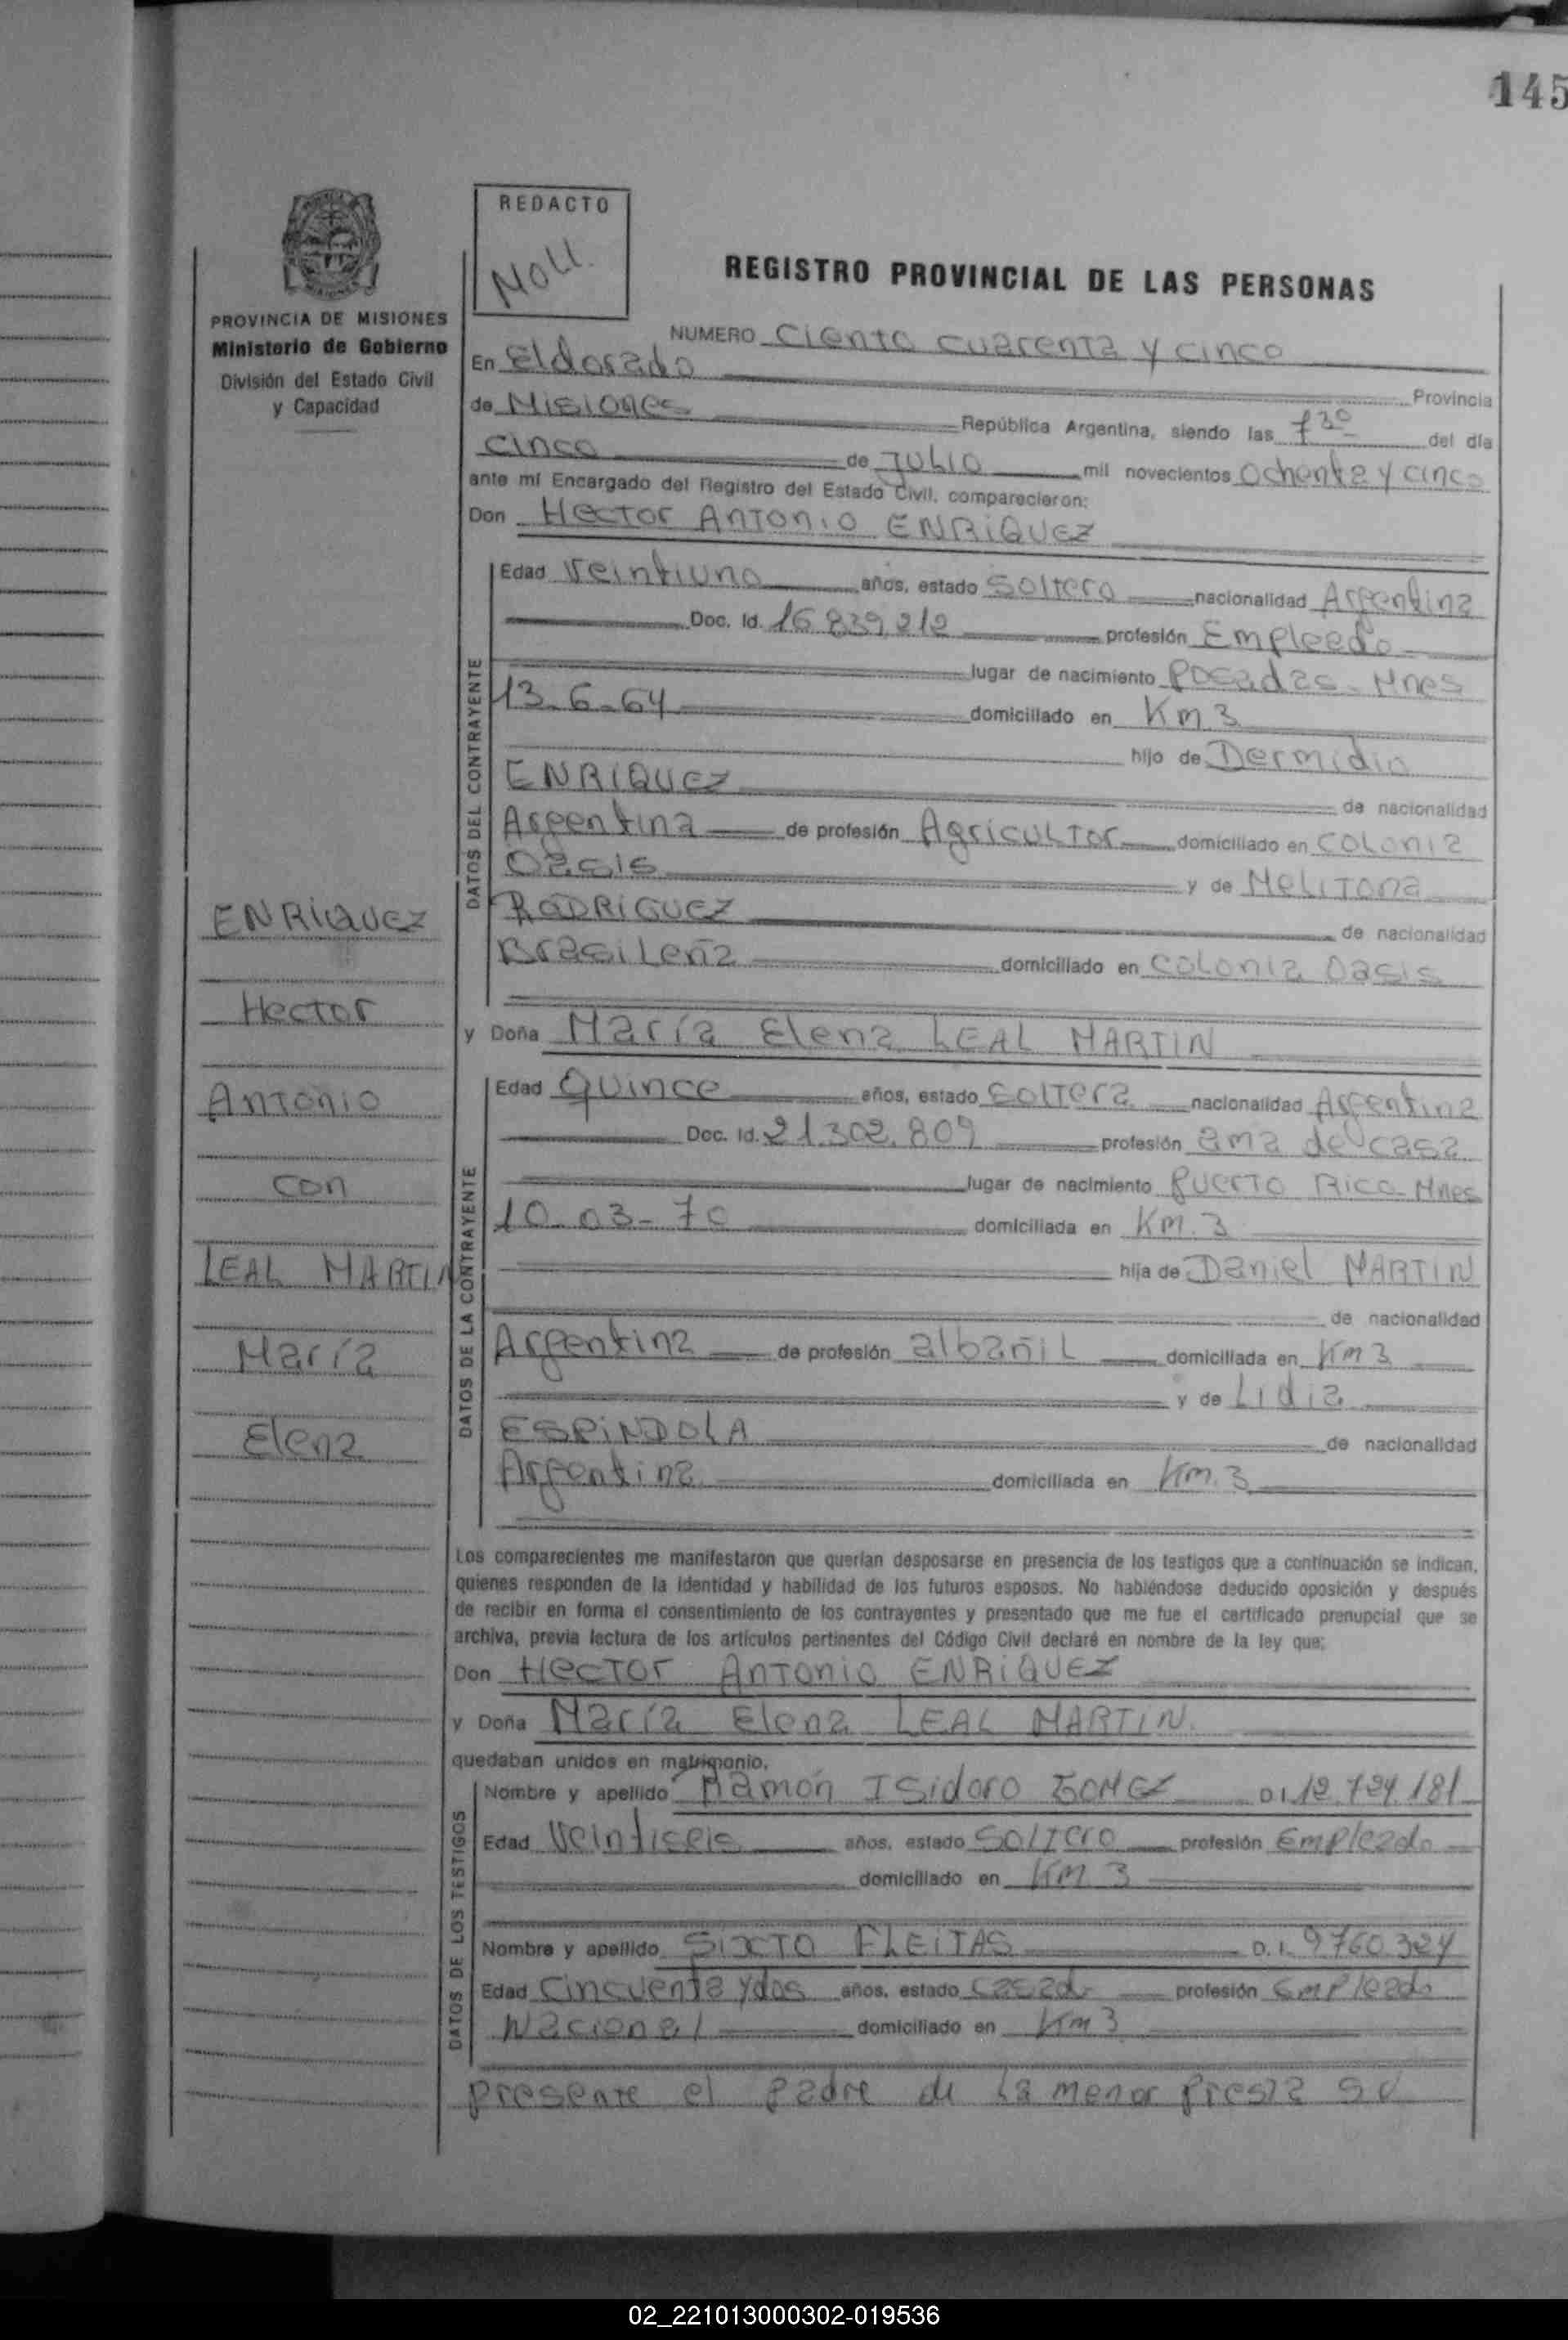 145
REDACTO
NOLL.
PROVINCIA DE MISIONES
Ministerio de Gobierno
División del Estado Civil
y Capacidad
REGISTRO PROVINCIAL DE LAS PERSONAS
NUMERO Ciento cuarenta y cinco
En Eldorado Provincia
de Misiones República Argentina, siendo las 7 30 del día
cinco de JULIO mil novecientos Ochenta y cinco
ante mí Encargado del Registro del Estado Civil, comparecieron:
Don Hector Antonio ENRIQUEZ
DATOS DEL CONTRAYENTE
Edad Veintiuno años, estado Soltero nacionalidad Argentina
Doc. Id. 16.839.212 profesión Empleado
lugar de nacimiento Posadas-Mnes
13-6-64 domiciliado en Km 3
hijo de Dermidio
ENRIQUEZ de nacionalidad
Argentina de profesión Agricultor domiciliado en Colonia
Oasis y de Melitona
RODRIGUEZ de nacionalidad
Brasileña domiciliado en Colonia Oasis
y Doña María Elena LEAL MARTIN
DATOS DE LA CONTRAYENTE
Edad Quince años, estado Soltera nacionalidad Argentina
Doc. Id. 21.302.809 profesión ama de casa
lugar de nacimiento Puerto Rico-Mnes
10-03-70 domiciliada en Km. 3
hija de Daniel MARTIN
de nacionalidad
Argentina de profesión albañil domiciliada en Km 3
y de Lidia
ESPINDOLA de nacionalidad
Argentina domiciliada en Km. 3
ENRIQUEZ
Hector
Antonio
con
LEAL MARTIN
María
Elena
Los comparecientes me manifestaron que querían desposarse en presencia de los testigos que a continuación se indican,
quienes responden de la identidad y habilidad de los futuros esposos. No habiéndose deducido oposición y después
de recibir en forma el consentimiento de los contrayentes y presentado que me fue el certificado prenupcial que se
archiva, previa lectura de los artículos pertinentes del Código Civil declaré en nombre de la ley que:
Don Hector Antonio ENRIQUEZ
y Doña María Elena LEAL MARTIN.
quedaban unidos en matrimonio.
DATOS DE LOS TESTIGOS
Nombre y apellido Ramón Isidoro GOMEZ D.I. 12.724.181
Edad Veintiseis años, estado Soltero profesión Empleado
domiciliado en Km 3
Nombre y apellido SIXTO FLEITAS D.I. 9760.324
Edad Cincuenta y dos años, estado casado profesión Empleado
Nacional domiciliado en Km 3
presente el padre de la menor presta su
02_221013000302-019536